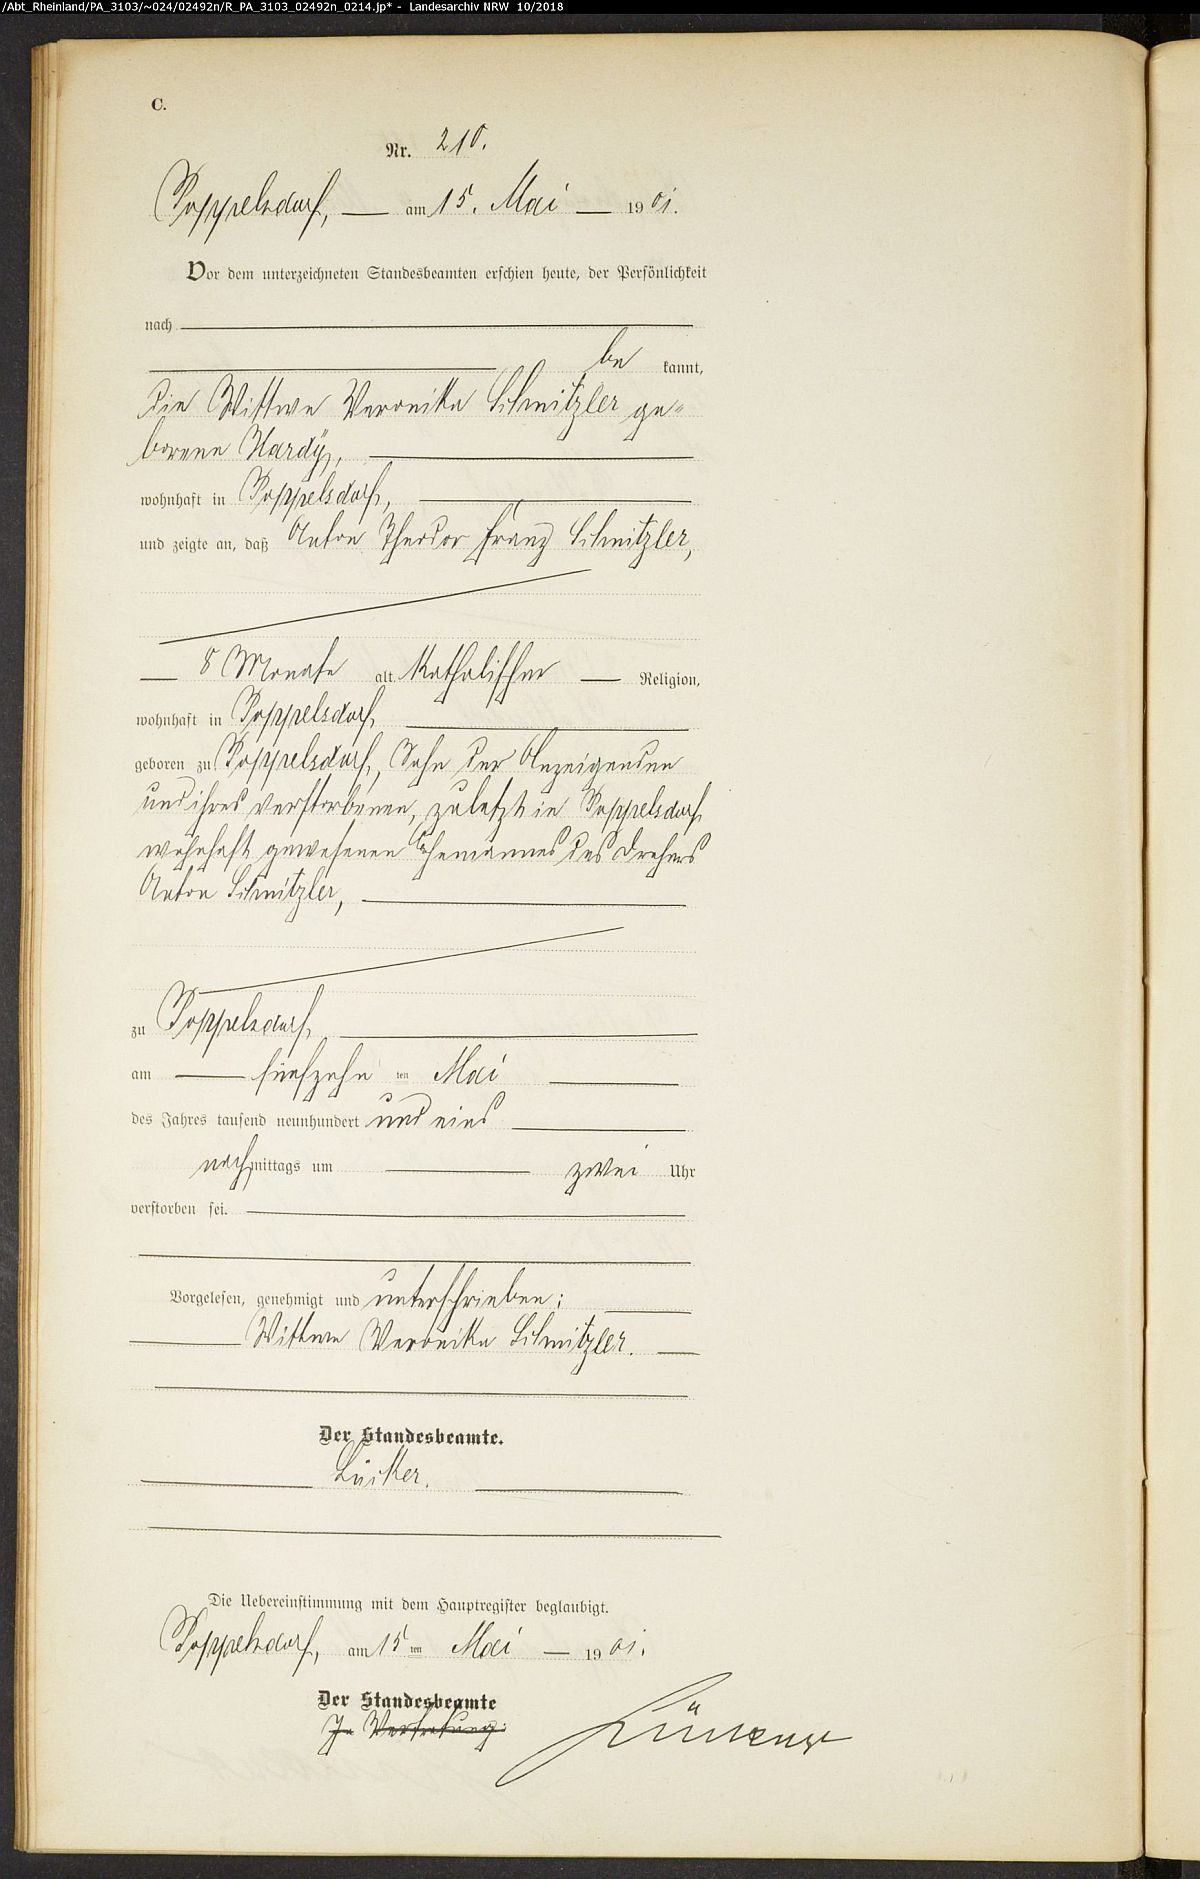 /Abt_Rheinland/PA_3103/~024/02492n/R_PA_3103_02492n_0214.jp* - Landesarchiv NRW 10/2018
C.
Nr. 210.
Poppelsdorf, am 15. Mai 1901.
Vor dem unterzeichneten Standesbeamten erschien heute, der Persönlichkeit
nach
be kannt,
die Wittwe Veronika Schnitzler ge-
borene Hardÿ,
wohnhaft in Poppelsdorf,
und zeigte an, daß Anton Theodor Franz Schnitzler,
8 Monate alt, katholischer Religion,
wohnhaft in Poppelsdorf,
geboren zu Poppelsdorf, Sohn der Anzeigenden
und ihres verstorbenen, zuletzt in Poppelsdorf
wohnhaft gewesenen Ehemannes des Drehers
Anton Schnitzler,
zu Poppelsdorf,
am fünfzehn ten Mai
des Jahres tausend neunhundert und eins
nach mittags um zwei Uhr
verstorben sei.
Vorgelesen, genehmigt und unterschrieben:
Wittwe Veronika Schnitzler.
Der Standesbeamte.
Lücker.
Die Uebereinstimmung mit dem Hauptregister beglaubigt.
Poppelsdorf, am 15 ten Mai 1901.
Der Standesbeamte
In Vertretung: